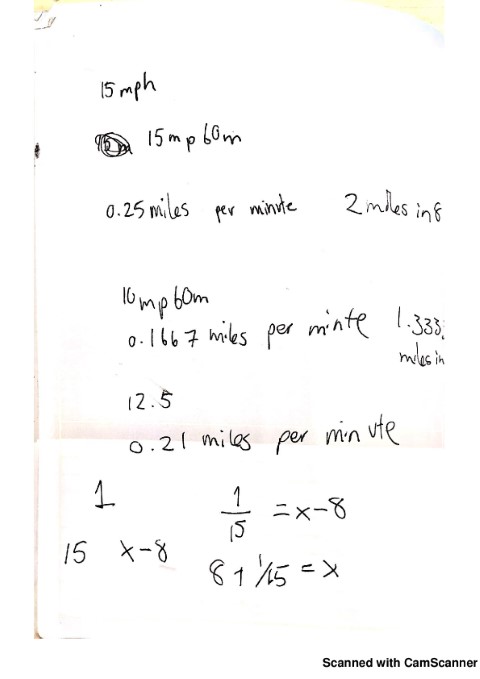 15 mph
15 mp 60m
0.25 miles per minute 2 miles in 8
10 mp 60m
0.1667 miles per minte 1.333.
miles in
12.5
0.21 miles per minute
1
1/15 = x-8
15 x-8
8+1/15 = x
Scanned with CamScanner